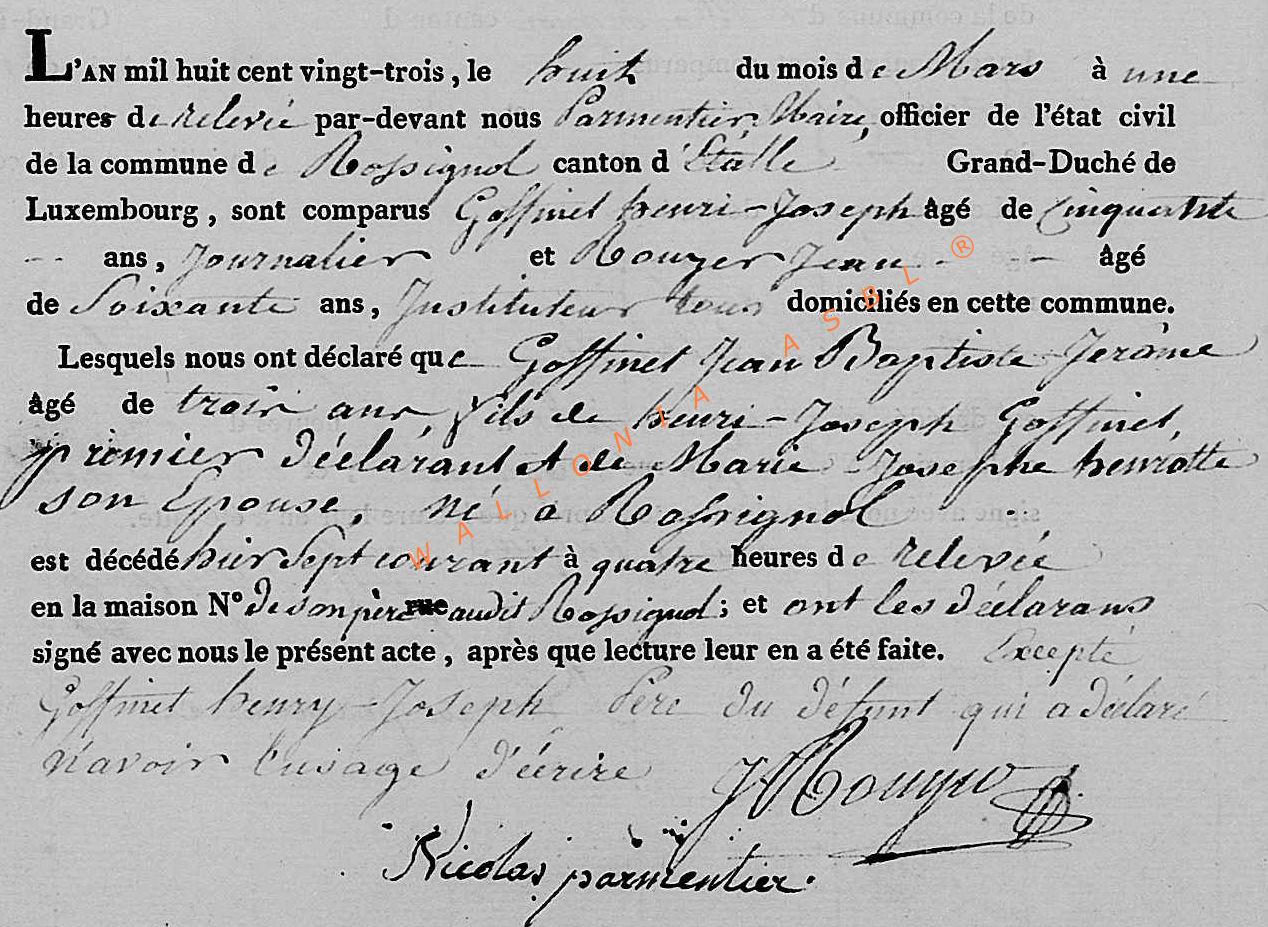 L'AN mil huit cent vingt-trois, le huit du mois de Mars à une
heures de relevée par-devant nous Parmentier Maire, officier de l'état civil
de la commune de Rossignol canton d'Etalle Grand-Duché de
Luxembourg, sont comparus Goffinet henri-Joseph âgé de Cinquante
-- ans, Journalier et Rouyer Jean - - âgé
de Soixante ans, Instituteur tous domiciliés en cette commune.
Lesquels nous ont déclaré que Goffinet Jean Baptiste Jerôme
âgé de trois ans, fils de henri-Joseph Goffinet,
premier déclarant et de Marie Josephe henrotte
son Epouse, né à Rossignol
est décédé hier sept courant à quatre heures de relevée
en la maison N° de son père rue audit Rossignol; et ont les déclarans
signé avec nous le présent acte, après que lecture leur en a été faite. Excepté
Goffinet henry-Joseph Père du défunt qui a déclaré
n'avoir l'usage d'écrire J Rouyer
Nicolas parmentier.
WALLONIA ASBL ®